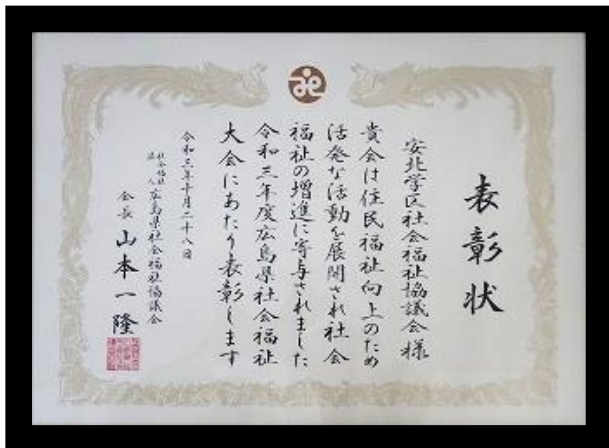 表彰状
安北学区社会福祉協議会様
貴会は住民福祉向上のため
活発な活動を展開され社会
福祉の増進に寄与されました
令和三年度広島県社会福祉
大会にあたり表彰します
令和三年十月二十八日
社会福祉法人広島県社会福祉協議会
会長山本一隆